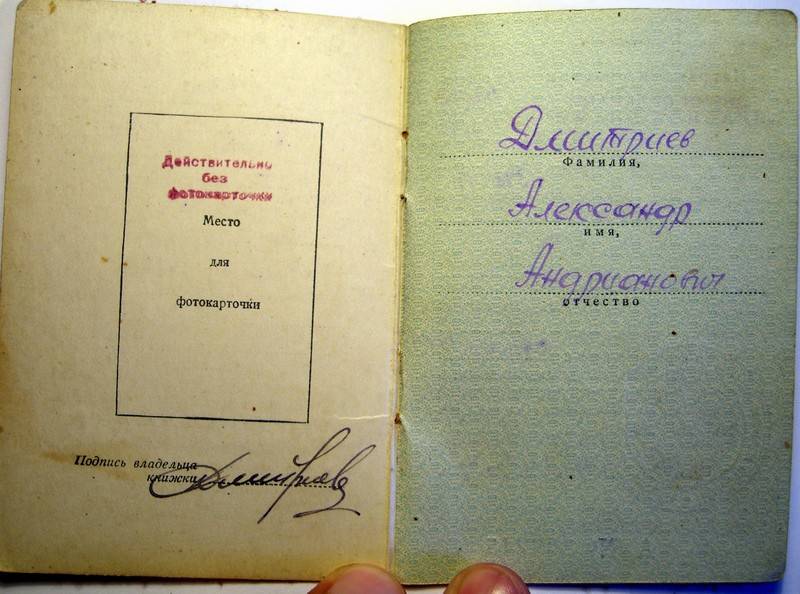 Действительно
без
фотокарточки
Место
для
фотокарточки
Подпись владельца
книжки
Дмитриев
Дмитриев
Фамилия,
Александр
имя,
Андрианович
отчество